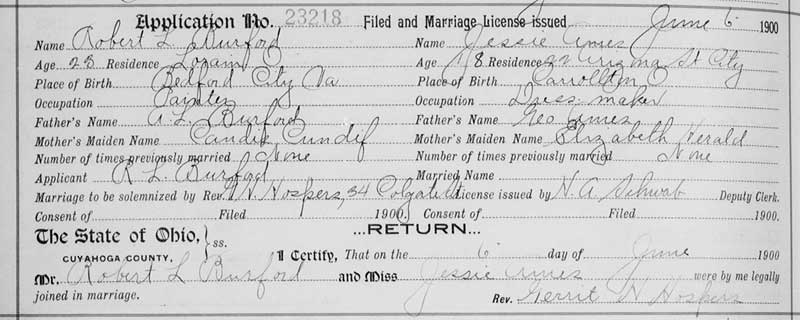 Application No. 23218 Filed and Marriage License issued June 6 1900
Name Robert L. Burford Name Jessie Ames
Age 23 Residence Lorain O Age 18 Residence 22 Arizona St City
Place of Birth Bedford City Va Place of Birth Carrollton O
Occupation Painter Occupation Dress maker
Father's Name A. L. Burford Father's Name Geo Ames
Mother's Maiden Name Candis Cundif Mother's Maiden Name Elizabeth Herald
Number of times previously married None Number of times previously married None
Applicant R L. Burford Married Name
Marriage to be solemnized by Rev. G. H. Hospers, 34 Colgate St License issued by H. A. Schwab Deputy Clerk.
Consent of Filed 1900. Consent of Filed 1900.
The State of Ohio, ss. ...RETURN...
CUYAHOGA COUNTY, I Certify, That on the 6 day of June 1900
Mr. Robert L Burford and Miss Jessie Ames were by me legally
joined in marriage. Rev. Gerrit H Hospers